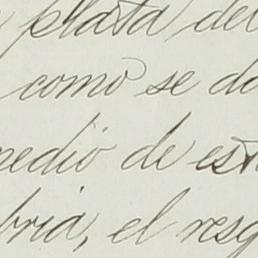 plata del
como se da
medio de est
bria, el resg